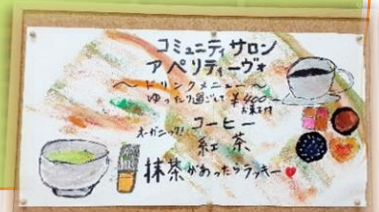 コミュニティサロン
アペリティーヴォ
〜ドリンクメニュー〜
ゆったり過ごして ¥400〜
お菓子付
オーガニック! コーヒー
紅茶
抹茶があったらラッキー♥